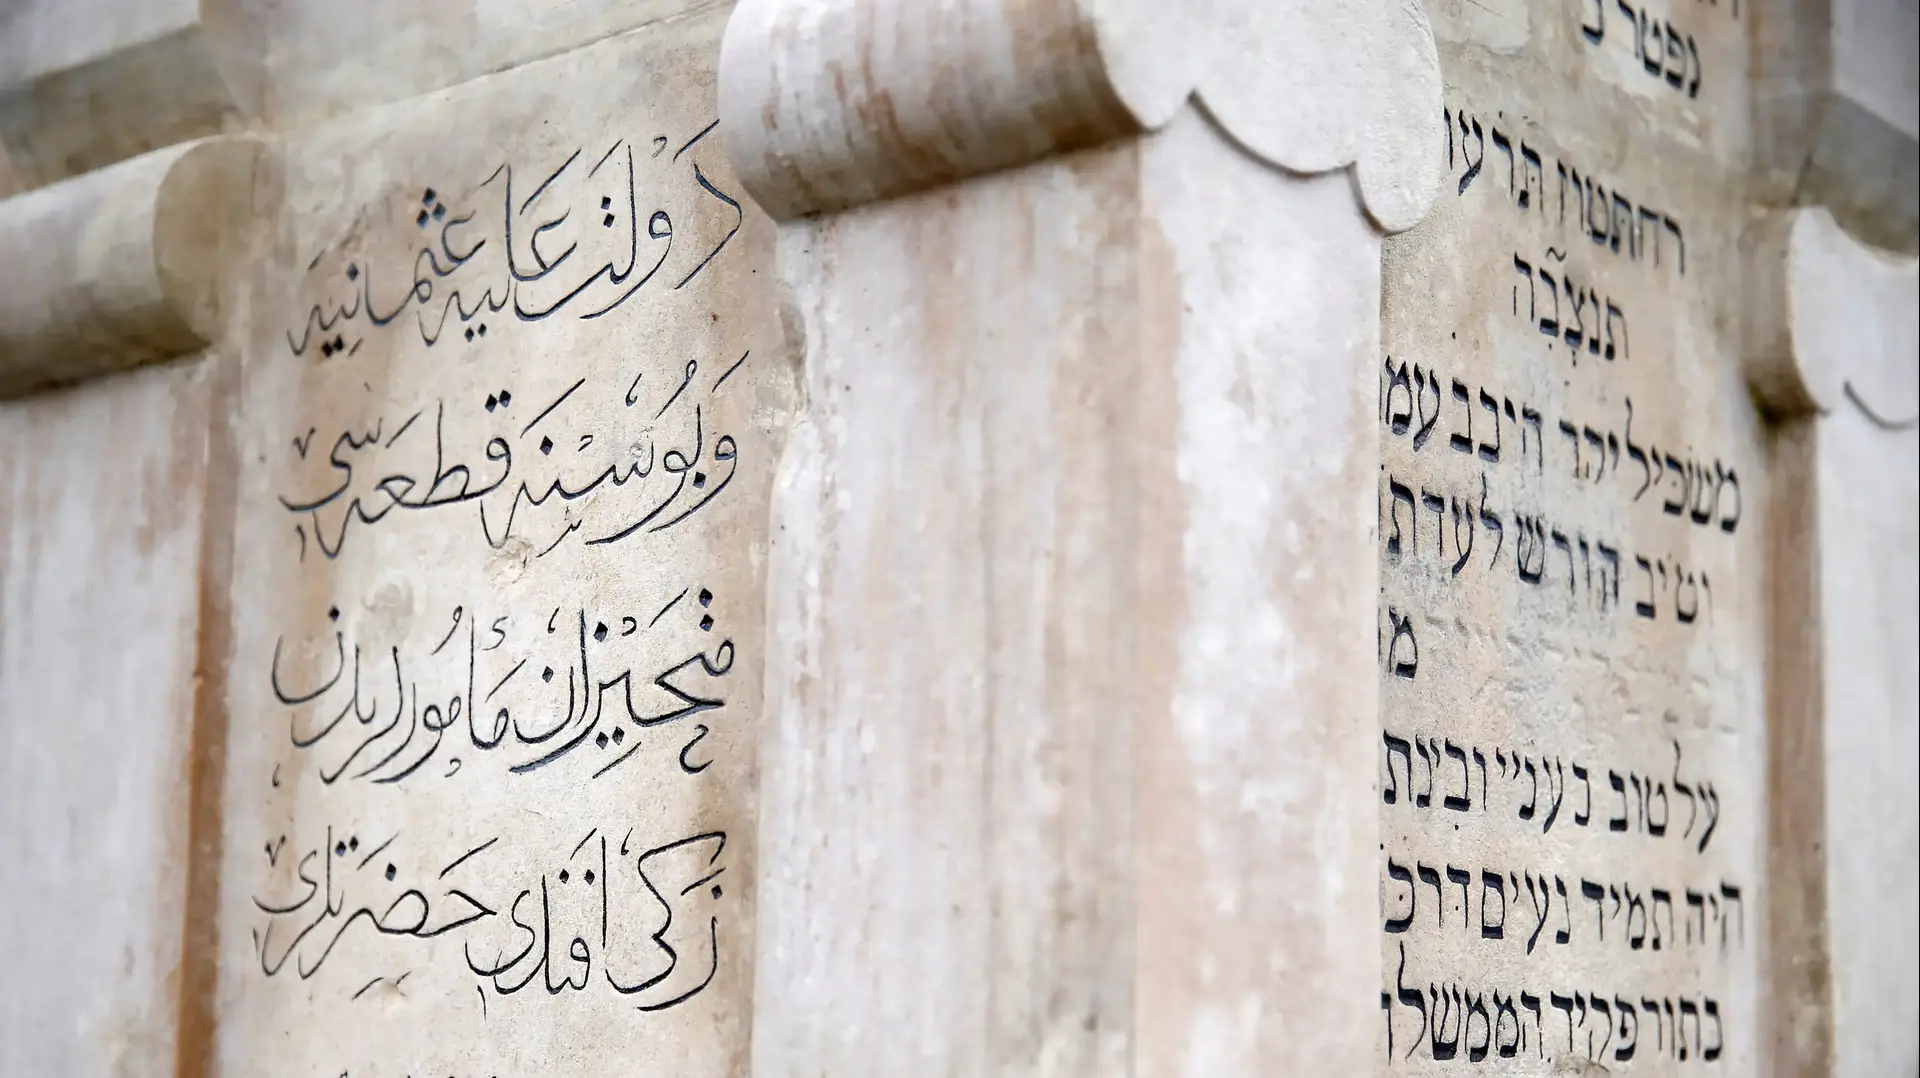 دولت عليه عثمانيه
وبوسنه قطعه سی
متحيزان مأمورلريدن
زكی افندی حضرتلری
נפטר ב
רחתטוין תרעו
תנצבה
משכיל יהד היבב עמ
וטיב הורש לעדת
מ
על טוב בעניי ובינת
היה תמיד נעים דרכ
בתור פקיד הממשלו